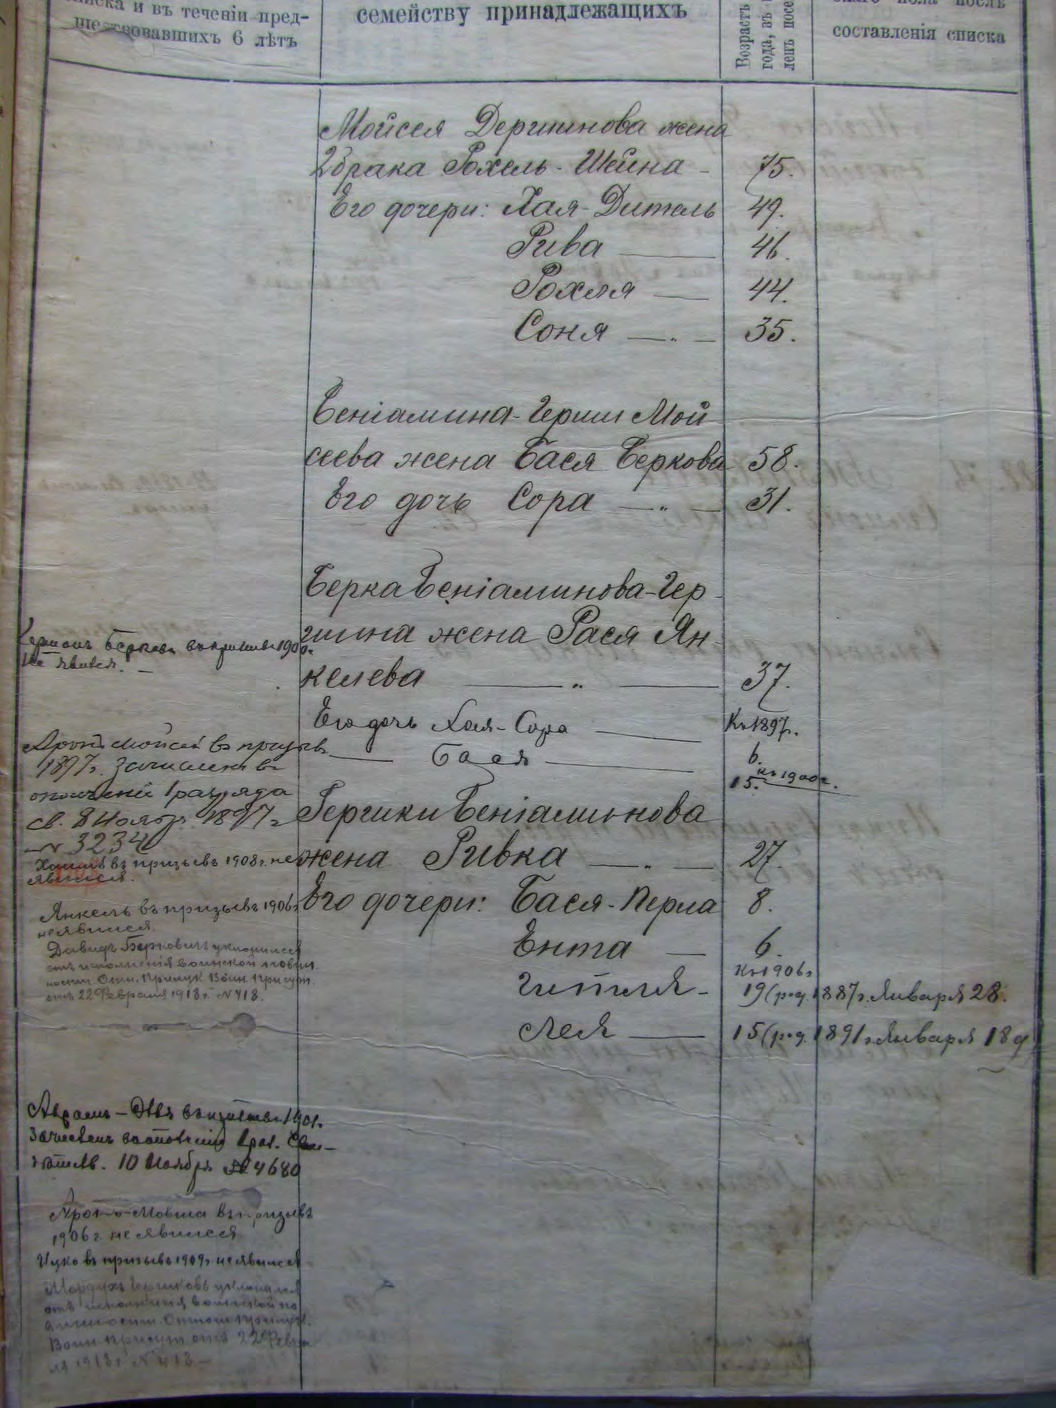 списка и въ теченіи пред-
шествовавшихъ 6 лѣтъ
семейству принадлежащихъ
Возрастъ
года, въ
ленъ посе
скаго пола послѣ
составленія списка
Мойсея Дершинова жена
2 брака Рохель-Шейна - 75.
Его дочери: Хая-Дитель 49.
Рива — 46.
Рохля — 44.
Соня — „ — 35.
Беніамина-Герши Мой
сеева жена Бася Беркова 58.
Его дочь Сора — „ — 31.
Берка Беніаминова-Гер-
шина жена Рася Ян-
келева — „ — 37.
Его дочь Хая-Сора — Къ 1897г.
6.
— Бася — къ 1900г.
15.
Гершки Беніаминова
жена Ривка — „ — 27
Его дочери: Бася-Перла 8.
Ента — 6.
Къ 1906г
Гитля - 19 (род. 1887г. Января 28.
Лея — 15 (род. 1891г. Января 18 д
Берковъ въ призывъ 1900г.
не явился. —
Аронъ Мойсей въ призывъ
1897г. зачисленъ въ
ополченіе 1 разряда
св. 8 Ноябр. 1897г
№ 3234
въ призывъ 1908г. не
явился.
Янкель въ призывъ 1906г
не явился.
Давидъ Берковичъ уклонился
отъ исполненія воинской повин
ности Отн. Прилук. Воин. Присут.
отъ 22 Февраля 1913г. № 413.
Аврамъ-
въ призывъ 1901г.
зачисленъ въ ополченіе
10 Ноября № 4680
Аронъ-Мовша въ призывъ
1906г. не явился
Ицко въ призывъ 1909г не явился
Мордухъ Гершковъ уклонился
отъ исполненія воинской по
винности. Отнош. Прилук.
Воин. Присут. отъ 22 Февра
ля 1913г. № 413 —